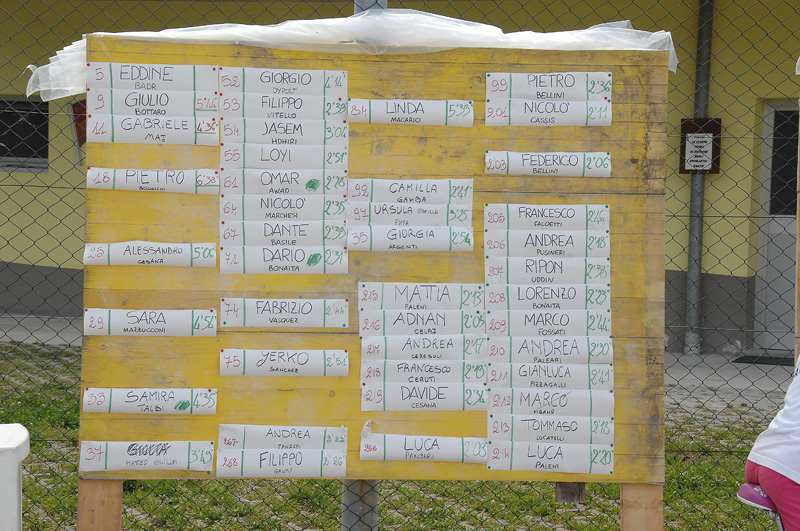 5 EDDINE
BADR
9 GIULIO 5'44
BOTTARO
11 GABRIELE 4'36
18 PIETRO 6'38
25 ALESSANDRO 5'06
CASANA
29 SARA 4'52
MAZZUCCONI
33 SAMIRA 4'35
TALBI
37 GIULIA 3'49
MATTEO
52 GIORGIO 4'14
DYPOLT
53 FILIPPO 2'39
VITELLO
54 JASEM 3'04
HDHIRI
55 LOYI 2'51
61 OMAR 2'28
AWAD
64 NICOLO' 2'35
MARCHEM
67 DANTE 2'39
BASILE
71 DARIO 2'31
BONAITA
74 FABRIZIO 2'44
VASQUEZ
75 YERKO 2'51
SANCHEZ
267 ANDREA 2'22
PANZERI
268 FILIPPO 2'26
84 LINDA 5'39
MACARIO
92 CAMILLA 2'41
GAMBA
94 URSULA CAMILLA 3'25
95 GIORGIA 2'54
ARGENTI
215 MATTIA 2'13
PALENI
216 ADNAN 2'09
CELAJ
217 ANDREA 2'17
CERESOLI
218 FRANCESCO 2'19
CERUTI
219 DAVIDE 2'31
CESANA
266 LUCA 2'03
PANZERI
99 PIETRO 2'36
BELLINI
201 NICOLO' 2'11
CASSIS
203 FEDERICO 2'06
BELLINI
205 FRANCESCO
FACOETTI
206 ANDREA 2'18
PUSINERI
207 RIPON 2'38
UDDIN
208 LORENZO 2'23
BONAITA
209 MARCO 2'44
FOSSATI
210 ANDREA 2'20
PALEARI
211 GIANLUCA 2'41
PIZZAGALLI
212 MARCO
213 TOMMASO 2'18
LUCATELLI
214 LUCA 2'20
PALENI